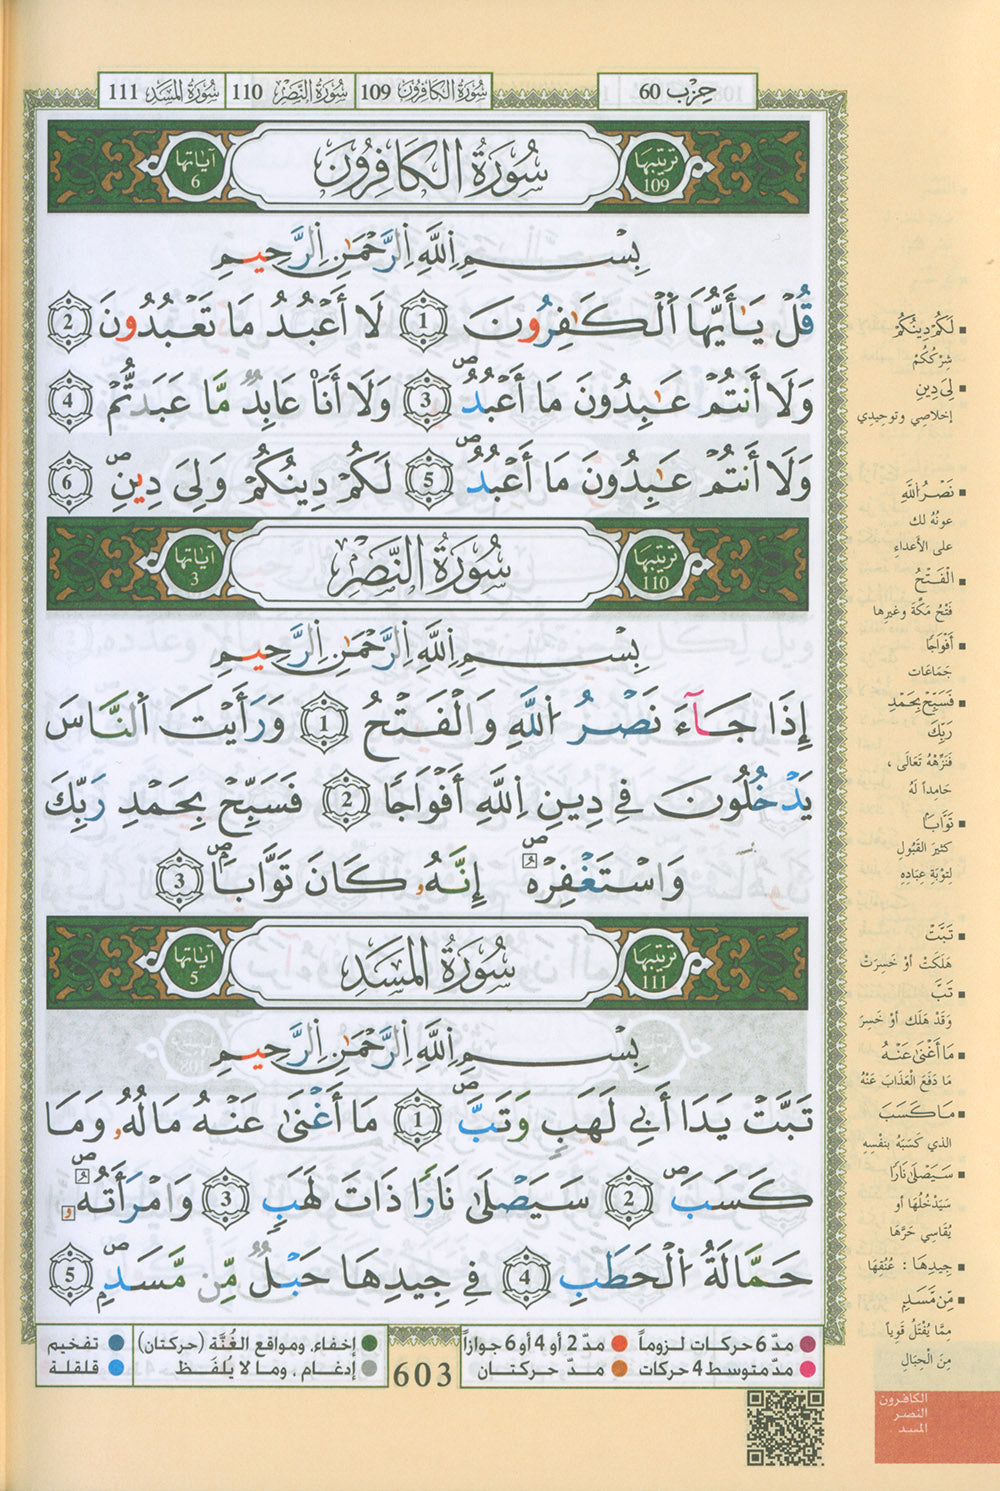 حِزْب 60
سُورَةُ الكَافِرُونَ 109
سُورَةُ النَّصْرِ 110
سُورَةُ المَسَدِ 111
ترتيبها 109
سُورَةُ الكَافِرُونَ
آياتها 6
بِسْمِ اللَّهِ الرَّحْمَٰنِ الرَّحِيمِ
قُلْ يَـٰٓأَيُّهَا ٱلْكَـٰفِرُونَ 1 لَا أَعْبُدُ مَا تَعْبُدُونَ 2
وَلَا أَنتُمْ عَـٰبِدُونَ مَا أَعْبُدُ 3 وَلَا أَنَا۠ عَابِدٌ مَّا عَبَدتُّمْ 4
وَلَا أَنتُمْ عَـٰبِدُونَ مَا أَعْبُدُ 5 لَكُمْ دِينُكُمْ وَلِىَ دِينِ 6
ترتيبها 110
سُورَةُ النَّصْرِ
آياتها 3
بِسْمِ اللَّهِ الرَّحْمَٰنِ الرَّحِيمِ
إِذَا جَآءَ نَصْرُ ٱللَّهِ وَٱلْفَتْحُ 1 وَرَأَيْتَ ٱلنَّاسَ
يَدْخُلُونَ فِى دِينِ ٱللَّهِ أَفْوَاجًا 2 فَسَبِّحْ بِحَمْدِ رَبِّكَ
وَٱسْتَغْفِرْهُ إِنَّهُۥ كَانَ تَوَّابًا 3
ترتيبها 111
سُورَةُ المَسَدِ
آياتها 5
بِسْمِ اللَّهِ الرَّحْمَٰنِ الرَّحِيمِ
تَبَّتْ يَدَا أَبِى لَهَبٍ وَتَبَّ 1 مَا أَغْنَىٰ عَنْهُ مَالُهُۥ وَمَا
كَسَبَ 2 سَيَصْلَىٰ نَارًا ذَاتَ لَهَبٍ 3 وَٱمْرَأَتُهُۥ
حَمَّالَةَ ٱلْحَطَبِ 4 فِى جِيدِهَا حَبْلٌ مِّن مَّسَدٍ 5
لَكُمْ دِينُكُمْ
شِرْكُكُمْ
لِىَ دِينِ
إخلاصِي وتوحيدِي
نَصْرُ ٱللَّهِ
عونُهُ لك
على الأعداءِ
ٱلْفَتْحُ
فَتْحُ مَكَّةَ وغيرِها
أَفْوَاجًا
جَمَاعَات
فَسَبِّحْ بِحَمْدِ
رَبِّكَ
فَنَزِّهْهُ تَعَالَى ،
حَامِداً لَهُ
تَوَّابًا
كثيرَ القَبُولِ
لِتوْبَةِ عِبَادِهِ
تَبَّتْ
هَلَكَتْ أوْ خَسِرَتْ
تَبَّ
وَقَدْ هَلَكَ أوْ خَسِرَ
مَا أَغْنَىٰ عَنْهُ
مَا دَفَعَ الْعَذَابَ عَنْهُ
مَا كَسَبَ
الذي كَسَبَهُ بنفْسِهِ
سَيَصْلَىٰ نَارًا
سَيَدْخُلُهَا أو
يُقَاسِي حَرَّهَا
جِيدِهَا : عُنُقِهَا
مِّن مَّسَدٍ
مِمَّا يُفْتَلُ قَوِياً
مِنَ الْحِبَالِ
مدّ 6 حركات لـزوماً
مدّ 2 أو 4 أو 6 جوازاً
مدّ متوسط 4 حركات
مـدّ حركتـان
603
إخفاء، ومواقع الغُنَّة (حركتان)
تفخيم
إدغام ، وما لا يُلفَـظ
قلقلة
الكافرون
النصر
المسد